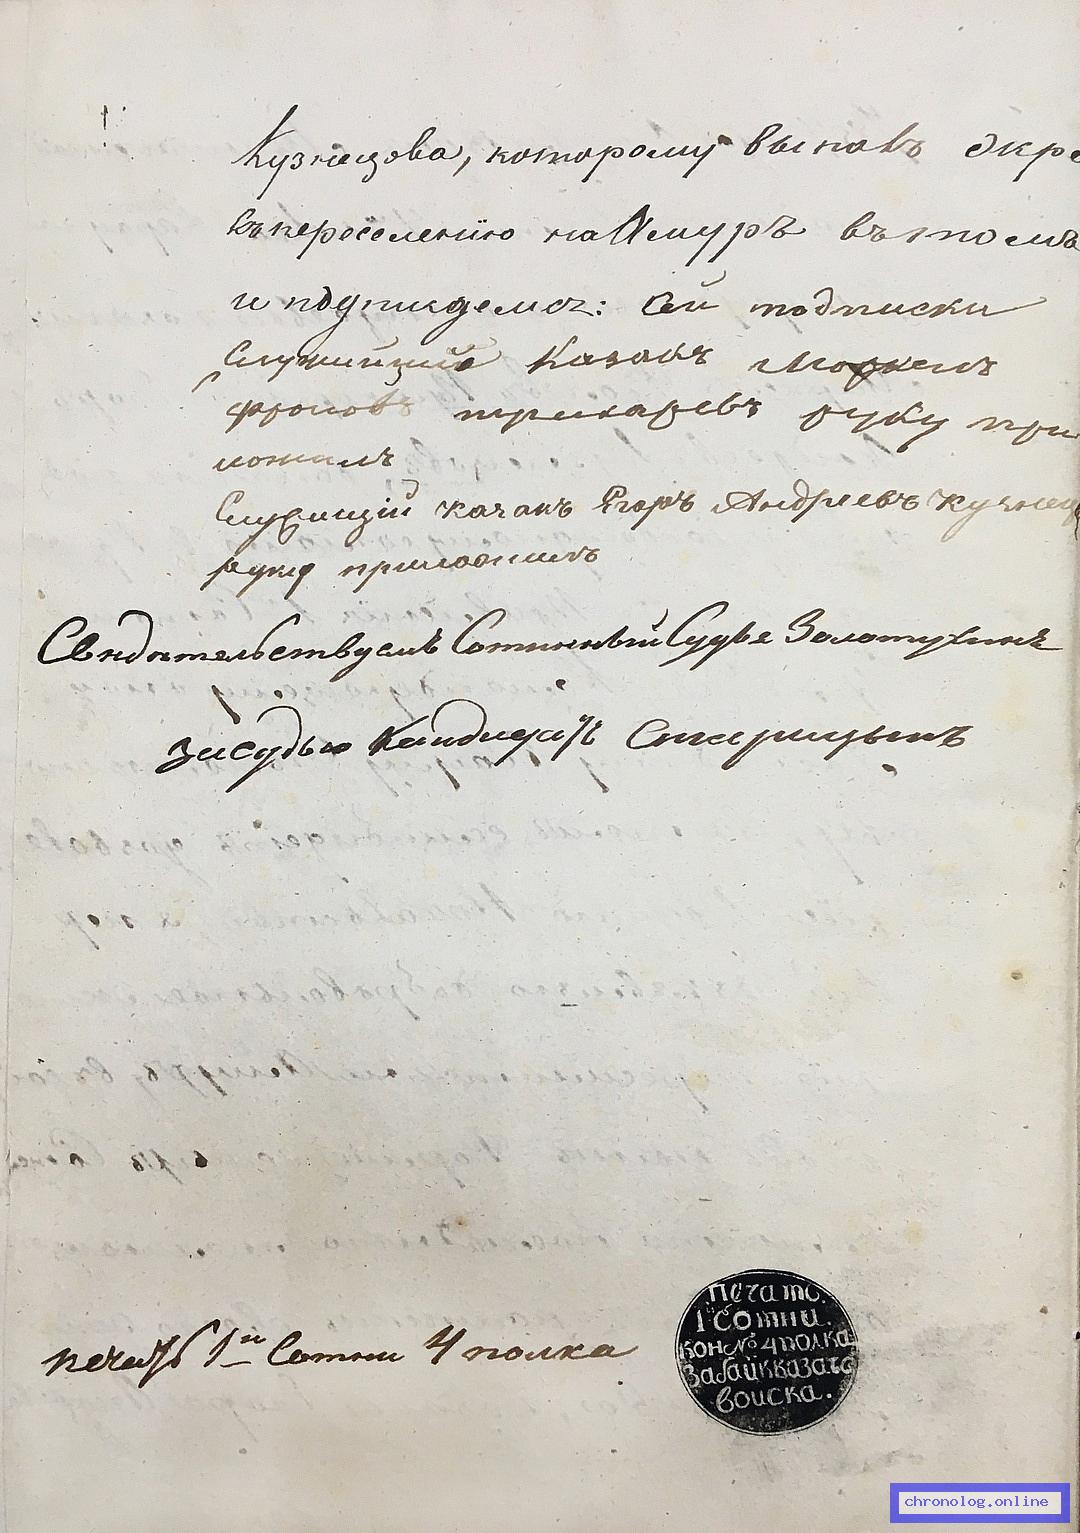 Кузнецова, которому вызовъ
къ переселенію на Амуръ въ томъ
и подпишемся: Сей подписки
Служищій Казакъ
Фроловъ руку при
ложилъ
Служищій казакъ Ягоръ Андреевъ Кузнец
руку приложилъ
Свидѣтельствуемъ Сотенный Судья Золотухинъ
За судью Кандидатъ Старицынъ
печать 1й Сотни 4 полка
Печать.
1й Сотни.
кон № 4 полка
Забайк казачь
воиска.
chronolog.online